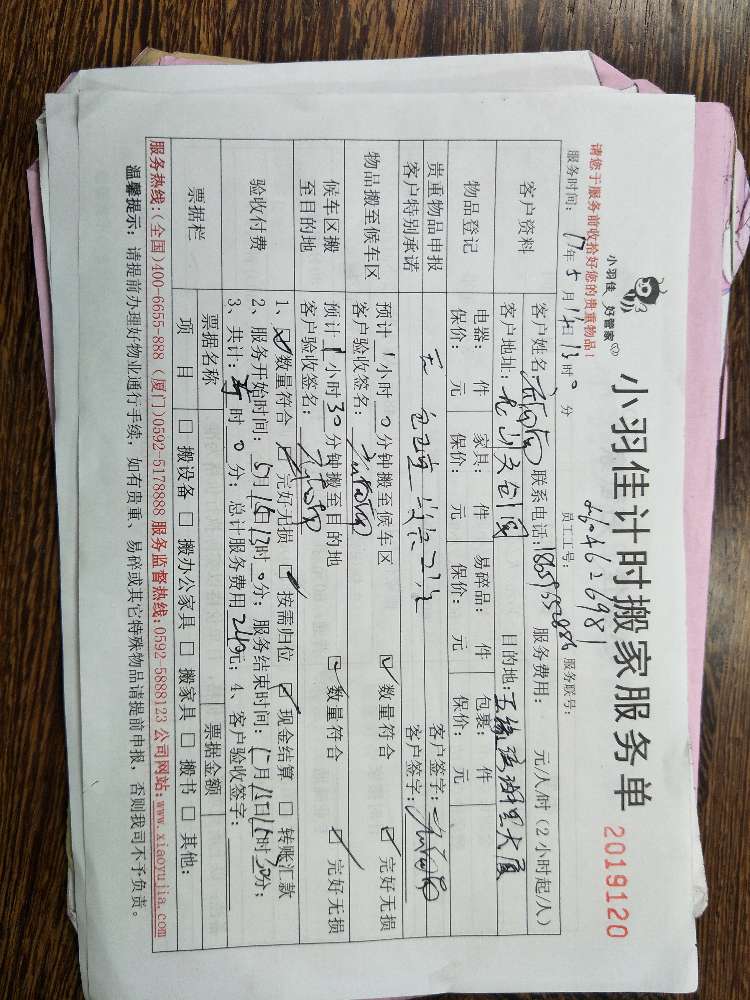 小羽佳 好管家
小羽佳计时搬家服务单 2019120
请您于服务前收拾好您的贵重物品!
服务时间: 17年5月16日13时0分 员工工号: 服务联号:
客户资料
客户姓名: 联系电话: 服务费用: 元/人/时(2小时起/人)
客户地址: 目的地: 五缘 大厦
物品登记
电器: 件 家具: 件 易碎品: 件 包裹: 件
保价: 元 保价: 元 保价: 元 保价: 元
贵重物品申报 无 客户签字:
客户特别承诺 客户签字:
物品搬至候车区 预计1小时0分钟搬至候车区 数量符合 完好无损
客户验收签名:
候车区搬至目的地 预计1小时30分钟搬至目的地 数量符合 完好无损
客户验收签名:
验收付费
1、数量符合 完好无损 按需归位 现金结算 转账汇款
2、服务开始时间: 5月16日13时0分; 服务结束时间: 月16日16时 分;
3、共计: 时0分; 总计服务费用240元; 4、客户验收签字:
票据栏 票据名称 票据金额
项目 搬设备 搬办公家具 搬家具 搬书 其他:
服务热线:(全国)400-6655-888 (厦门)0592-5178888 服务监督热线:0592-5888123 公司网站:www.xiaoyujia.com
温馨提示: 请提前办理好物业通行手续, 如有贵重、易碎或其它特殊物品请提前申报, 否则我司不予负责。